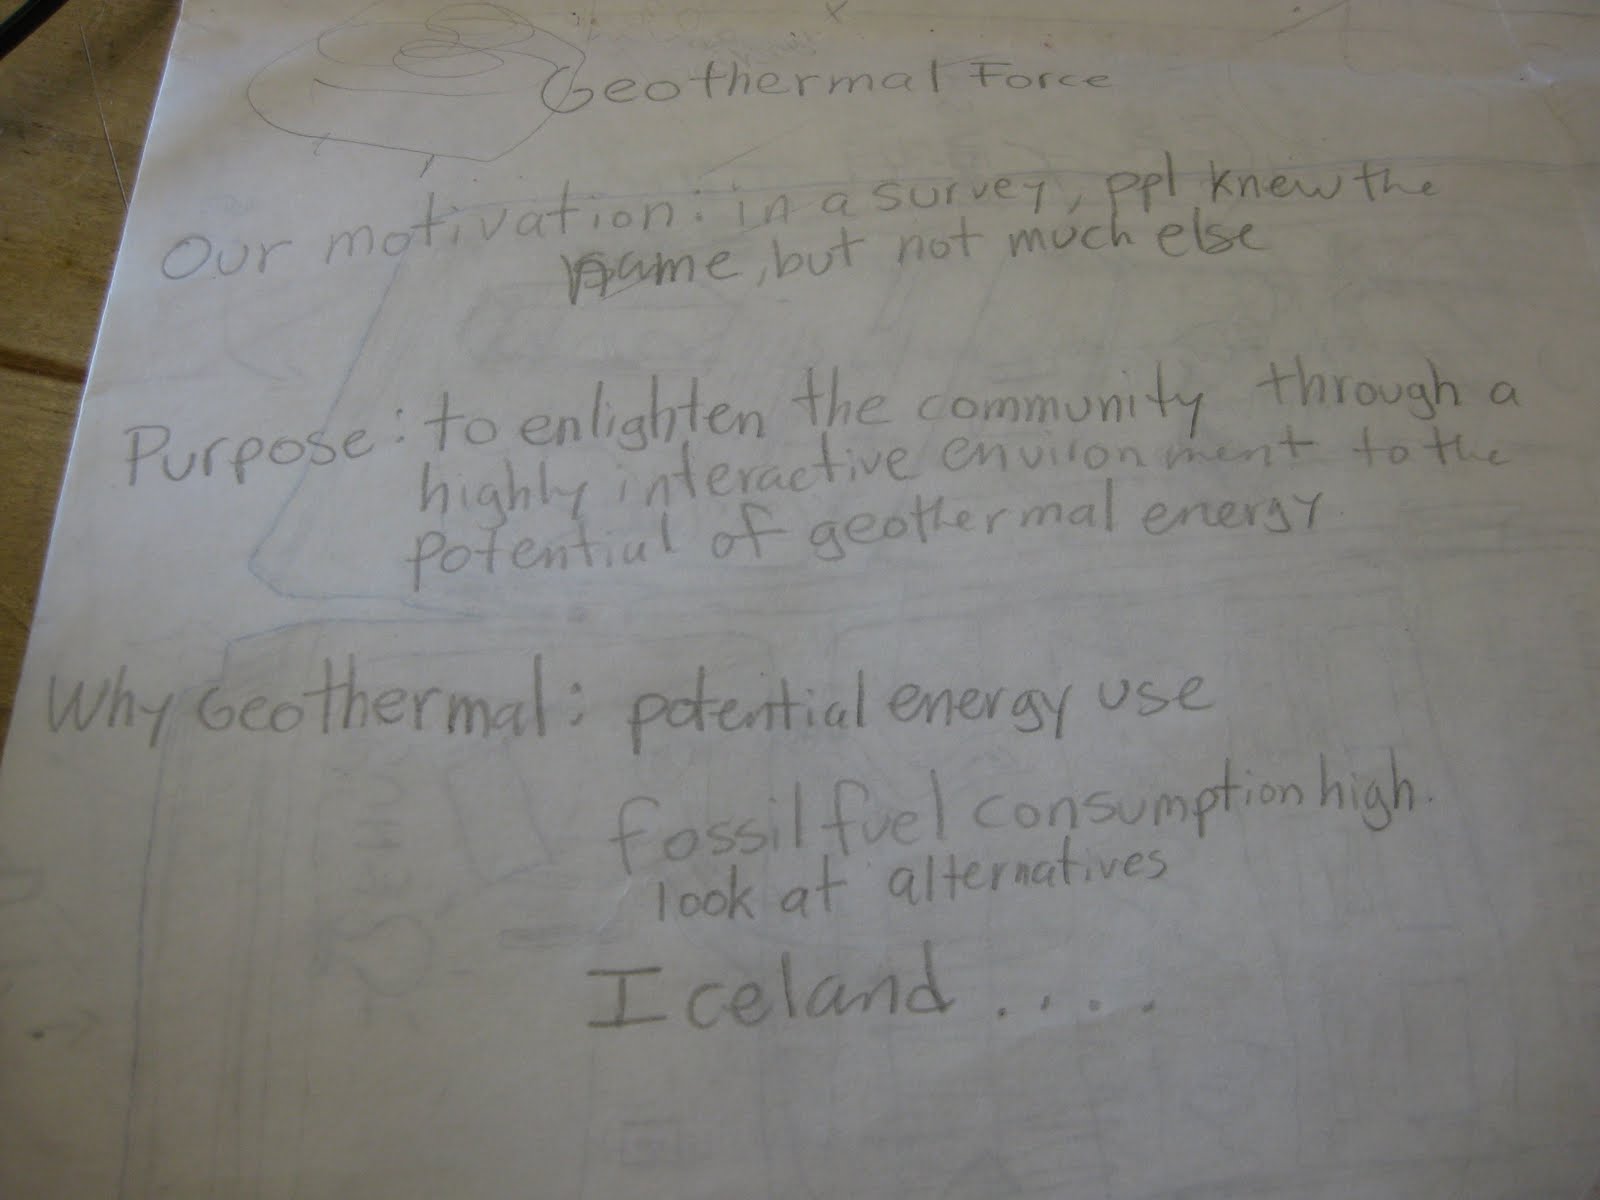 Geothermal Force
Our motivation: in a survey, ppl knew the
name, but not much else
Purpose: to enlighten the community through a
highly interactive environment to the
potential of geothermal energy.
Why Geothermal: potential energy use
fossil fuel consumption high.
look at alternatives
Iceland....